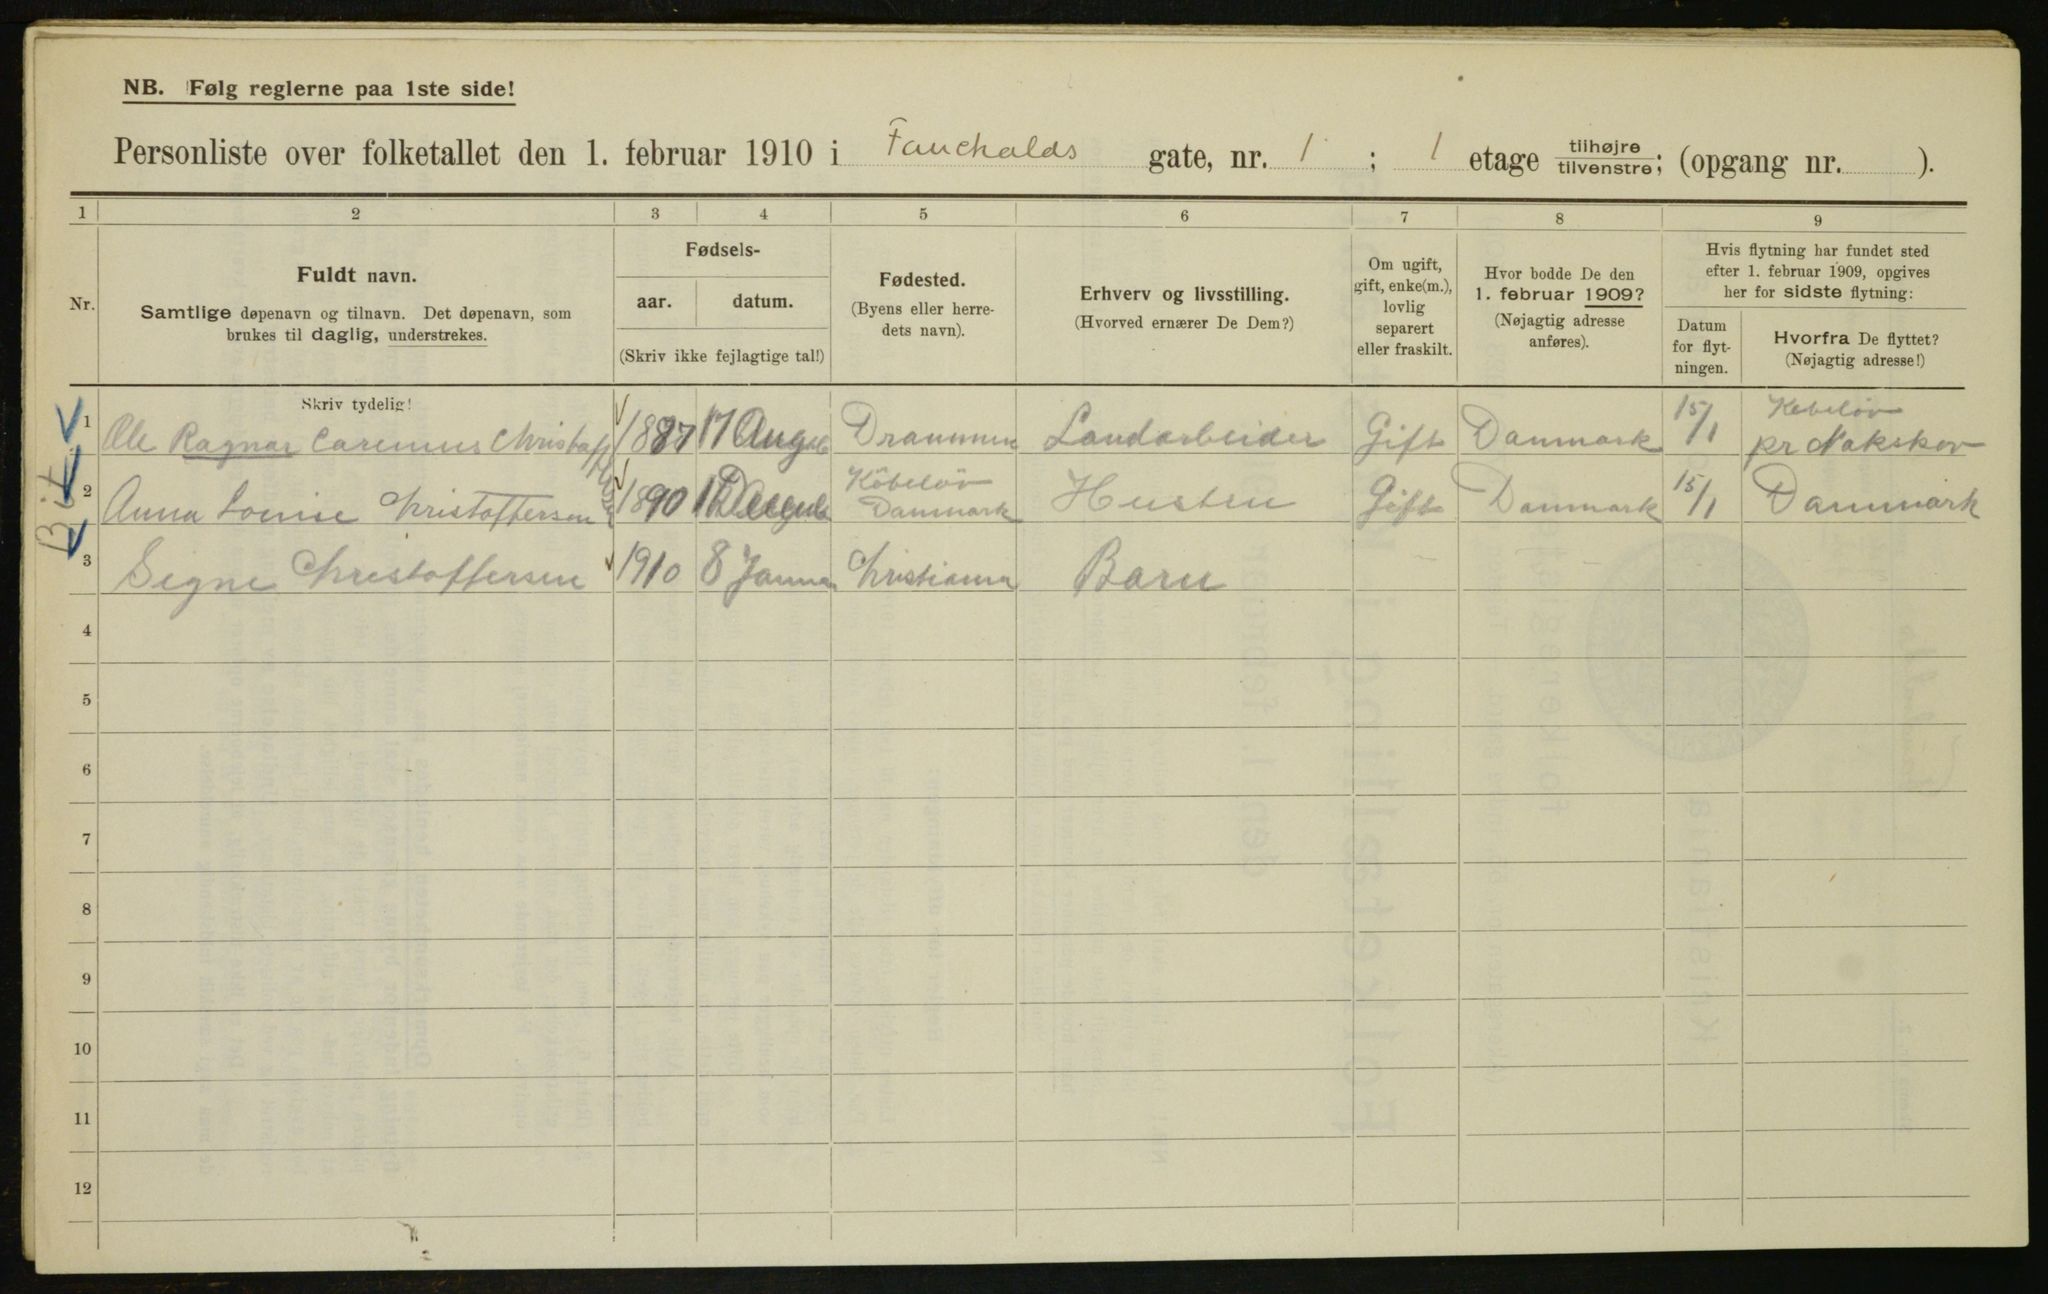 NB. Følg reglerne paa 1ste side!
Personliste over folketallet den 1. februar 1910 i Fauchalds gate, nr. 1 ; 1 etage tilhøjre/tilvenstre; (opgang nr. ).
1 2 3 4 5 6 7 8 9
Nr.
Fuldt navn.
Samtlige døpenavn og tilnavn. Det døpenavn, som
brukes til daglig, understrekes.
Fødsels-
aar. datum.
(Skriv ikke fejlagtige tal!)
Fødested.
(Byens eller herre-
dets navn).
Erhverv og livsstilling.
(Hvorved ernærer De Dem?)
Om ugift,
gift, enke(m.),
lovlig
separert
eller fraskilt.
Hvor bodde De den
1. februar 1909?
(Nøjagtig adresse
anføres).
Hvis flytning har fundet sted
efter 1. februar 1909, opgives
her for sidste flytning:
Datum
for flyt-
ningen.
Hvorfra De flyttet?
(Nøjagtig adresse!)
Skriv tydelig!
1 Ole Ragnar 1887 17 Aug Drammen Landarbeider Gift Danmark 15/1 Kebeløv
pr Nakskov
2 Anna Louise Christoffersen 1890 Købeløv
Danmark Hustru Gift Danmark 15/1 Danmark
3 Signe Christoffersen 1910 8 Januar Christiania Barn
4
5
6
7
8
9
10
11
12